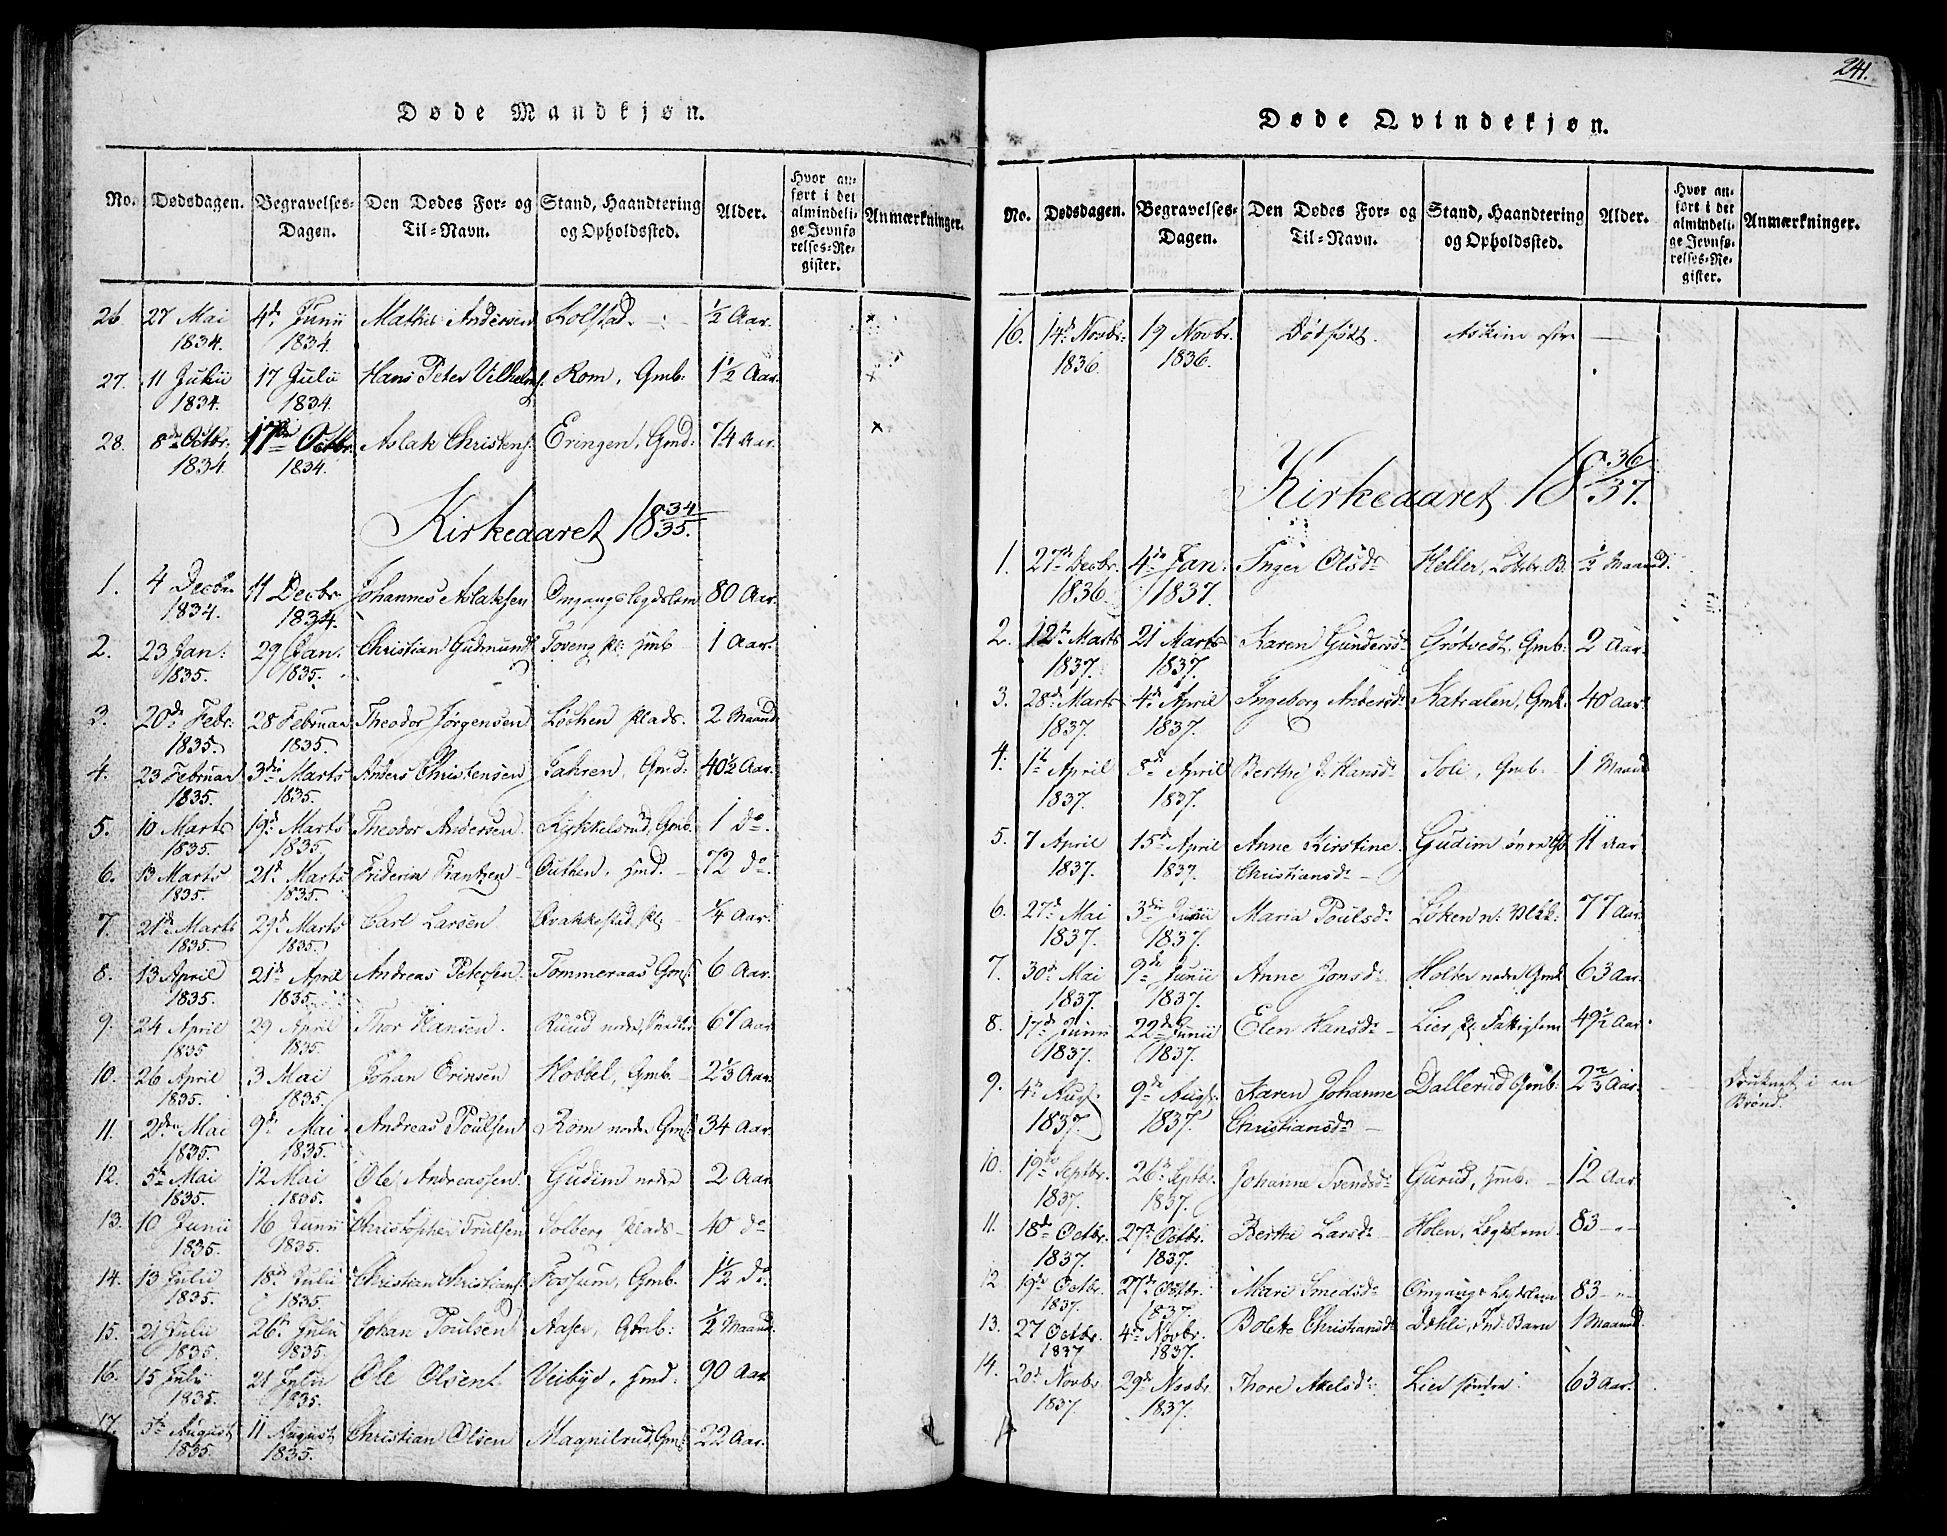 Døde Mandkjøn.
No. Dødsdagen. Begravelses-Dagen. Den Dødes For- og Til-Navn. Stand, Haandtering og Opholdssted. Alder. Hvor anført i det almindelige Jevnførelses-Register. Anmærkninger.
26 27 Mai 1834. 4de Junii 1834. Mathis Andersen Kolstad. ½ Aar. ×
27. 11 Julii 1834. 17 Julii 1834. Hans Peter Vilhelms. Rom, Gmb: 1½ Aar. ×
28. 8de Octbr. 1834. 17de Octbr. 1834. Aslak Christens. Eringen, Gmd: 74 Aar. ×
Kirkeaaret 1834/35.
1. 4 Decbr. 1834. 11 Decbr. 1834. Johannes Aslaksen Omgangslegdslem 80 Aar.
2. 23 Jan: 1835. 29 Jan. 1835. Christian Gudmunds. Toveng pl: hmb 1 Aar.
3. 20de Febr: 1835. 28 Februar 1835. Theodor Jørgensen Løchen Plads. 2 Maaned
4. 23 Februar 1835. 3die Marts 1835. Anders Christensen Jahren, Gmd: 40½ Aar.
5. 10 Marts 1835. 19de Marts 1835 Theodor Andersen. Kykkelsrud, Gmb. 1 do.
6. 13 Marts 1835. 21de Marts 1835. Friderin Frantzen Outhen, hmd. 72 do.
7. 21de Marts 1835. 29de Marts 1835. Carl Larsen Ovakkestad, pl ¼ Aar.
8. 13 April 1835. 21de April 1835. Andreas Petersen. Tommeraas Gmb 6 Aar.
9. 24 April 1835 29 April 1835. Thor Hansen. Ruud nedre, 67 Aar.
10. 26 April 1835. 3 Mai 1835. Johan Erinsen Hobbel, Gmb. 2⅓ Aar.
11. 2den Mai 1835. 9de Mai 1835. Andreas Poulsen Rom nedre Gmd: 34 Aar.
12. 5te Mai 1835. 12 Mai 1835. Ole Andreassen. Gudim nedre 2 Aar.
13. 10 Junii 1835. 16 Junii 1835. Christopher Trulsen Solberg Plads 40 do
14. 13 Julii 1835. 18de Julii 1835. Christian Christians. Fossum, Gmb. 1½ do.
15. 21 Julii 1835. 26de Julii 1835. Johan Poulsen Aaser, Gmb: ½ Maaned.
16. 15 Julii 1835. 21 Julii 1835. Ole Olsen Veibye, hmd. 90 Aar
17. 5te August 1835. 11 August 1835. Christian Olsen Magnilrud, Gmd 22 Aar.
241.
Døde Qvindekjøn.
No. Dødsdagen. Begravelses-Dagen. Den Dødes For- og Til-Navn. Stand, Haandtering og Opholdssted. Alder. Hvor anført i det almindelige Jevnførelses-Register. Anmærkninger.
16. 14de Novbr. 1836. 19 Novbr. 1836. Dødføtt. Askim østre
Kirkeaaret 1836/37.
1. 27de Decbr. 1836. 4de Jan: 1837. Inger Olsdr Heller, Løskr. B. ½ Maaned.
2. 12te Marts 1837. 21 Marts 1837. Karen Gundersdr Grøtvedt, Gmb: 2 Aar.
3. 28de Marts 1837. 4de April 1837. Ingeborg Andersdr Katralen, Gmk. 40 Aar.
4. 1te April 1837. 8de April 1837. Berthe J. Hansdr Soli, Gmb. 1 Maaned
5. 7 April 1837. 15de April 1837. Anne Kirstine Christiansdr Gudim øvre 11 Aar
6. 27de Mai 1837. 3die Junii 1837. Maria Poulsdr Løken n. 77 Aar.
7. 30de Mai 1837. 9de Junii 1837. Anne Jonsdr Holter nedre Gmk 63 Aar.
8. 17de Junii 1837. 22de Junii 1837. Elen Hansdr Lier, pl Fattiglem 49½ Aar.
9. 4de Aug: 1837. 9de Aug: 1837. Karen Johanne Christiansdr Dallerud Gmb: 2⅔ Aar. Druknet i en Brønd.
10. 19de Septbr. 1837. 26de Septbr. 1837. Johanne Svendsdr Gurud, hmb. 12 Aar.
11. 18de Octbr. 1837. 27de Octbr. 1837. Berthe Larsdr Holen, Legdslem 83 - " -
12 19de Octbr. 1837. 27de Octbr. 1837. Mari Smedsdr Omgangs Legdslem 83 - " -
13. 27 Octbr. 1837 4de Novbr. 1837. Bolette Christiansdr Dæhli, Ind. Barn 1 Maaned
14. 20de Novbr 1837. 29de Novbr. 1837. Thore Axelsdr Lier søndre. 63 Aar.